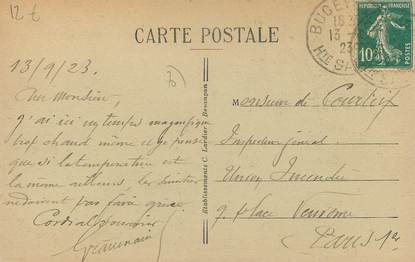 12 €
CARTE POSTALE
BUGEY
13
23
Hte SAÔNE
RÉPUBLIQUE FRANÇAISE
10c
POSTES
13/9/23.
Cher Monsieur,
J'ai ici un temps magnifique
trop chaud même et je pense
que si la température est
la même ailleurs, les
ne doivent pas faire grève.
Cordial souvenir
Etablissements C. Lardier - Besançon
Monsieur de
Inspecteur général
Union Incendie
9. place Vendôme
Paris 1er